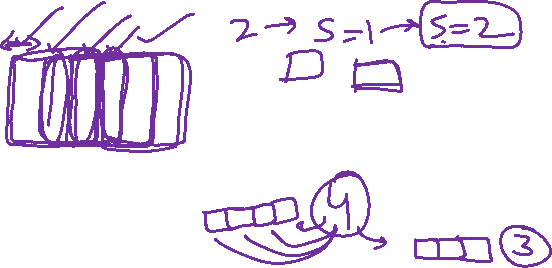 2 → S=1 → S=2
4
3